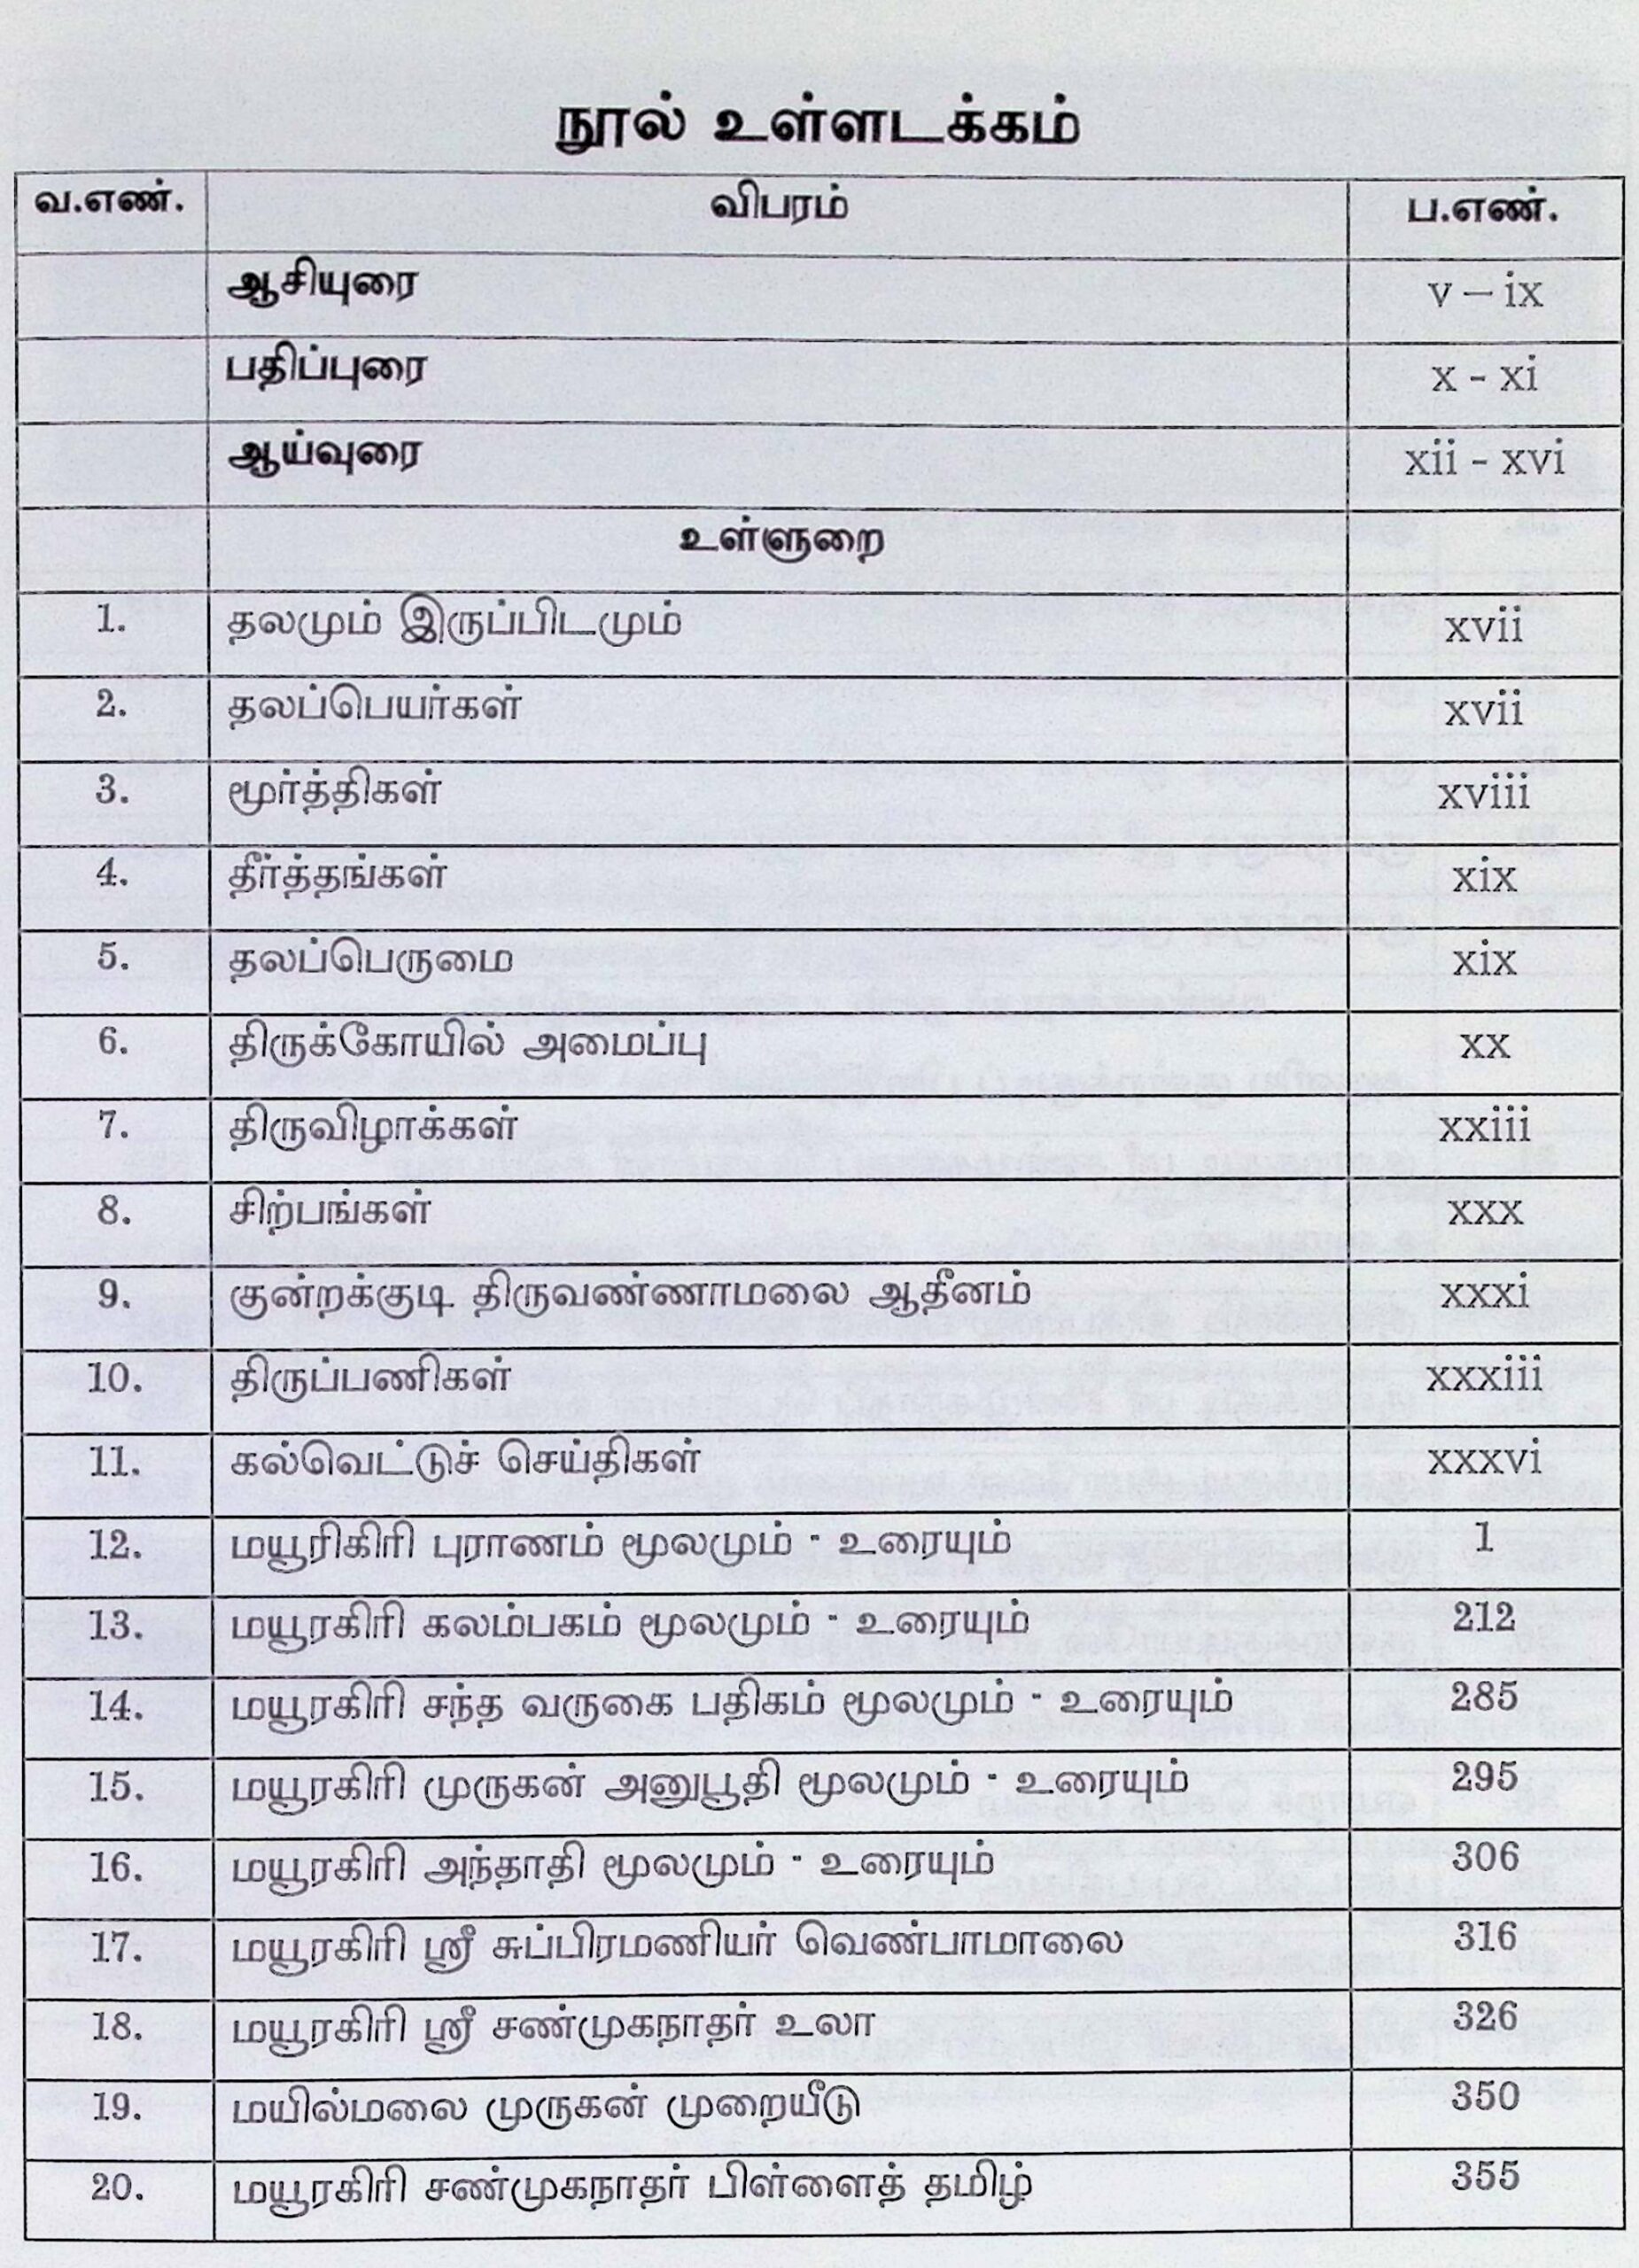 நூல் உள்ளடக்கம்
வ.எண். விபரம் ப.எண்.
ஆசியுரை v – ix
பதிப்புரை x - xi
ஆய்வுரை xii - xvi
உள்ளுறை
1. தலமும் இருப்பிடமும் xvii
2. தலப்பெயர்கள் xvii
3. மூர்த்திகள் xviii
4. தீர்த்தங்கள் xix
5. தலப்பெருமை xix
6. திருக்கோயில் அமைப்பு xx
7. திருவிழாக்கள் xxiii
8. சிற்பங்கள் xxx
9. குன்றக்குடி திருவண்ணாமலை ஆதீனம் xxxi
10. திருப்பணிகள் xxxiii
11. கல்வெட்டுச் செய்திகள் xxxvi
12. மயூரிகிரி புராணம் மூலமும் - உரையும் 1
13. மயூரகிரி கலம்பகம் மூலமும் - உரையும் 212
14. மயூரகிரி சந்த வருகை பதிகம் மூலமும் - உரையும் 285
15. மயூரகிரி முருகன் அனுபூதி மூலமும் - உரையும் 295
16. மயூரகிரி அந்தாதி மூலமும் - உரையும் 306
17. மயூரகிரி ஸ்ரீ சுப்பிரமணியர் வெண்பாமாலை 316
18. மயூரகிரி ஸ்ரீ சண்முகநாதர் உலா 326
19. மயில்மலை முருகன் முறையீடு 350
20. மயூரகிரி சண்முகநாதர் பிள்ளைத் தமிழ் 355